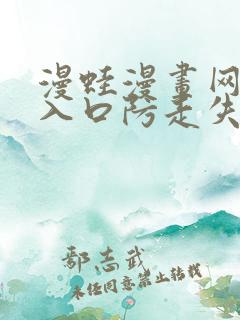 漫蛙漫畫网
入口防走失
鄢志武
未经同意禁止转载